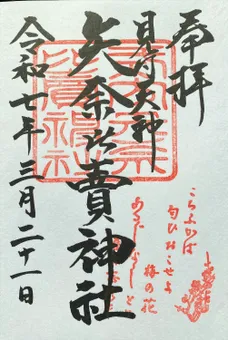 奉拝
見付天神
矢奈比賣神社
令和七年三月二十一日
こちふかば
匂ひおこせよ
梅の花
あるじなしと